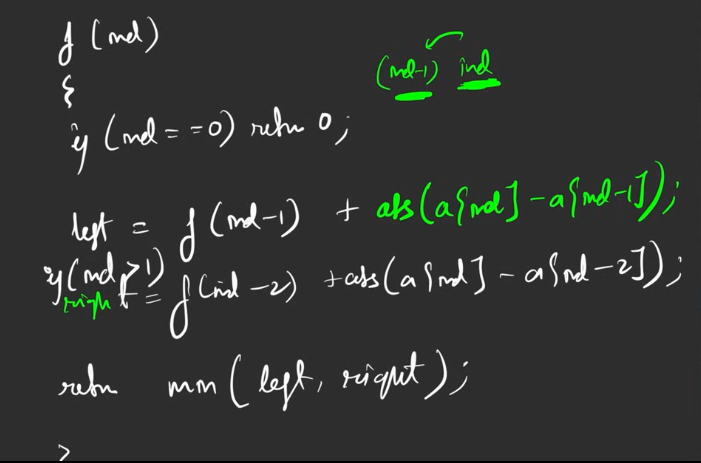 f (ind)
{
(ind-1) ind
if (ind == 0) return 0;
left = f (ind-1) + abs(a[ind] - a[ind-1]);
if (ind > 1)
right = f(ind -2) + abs(a[ind] - a[ind-2]);
return min (left, right);
}